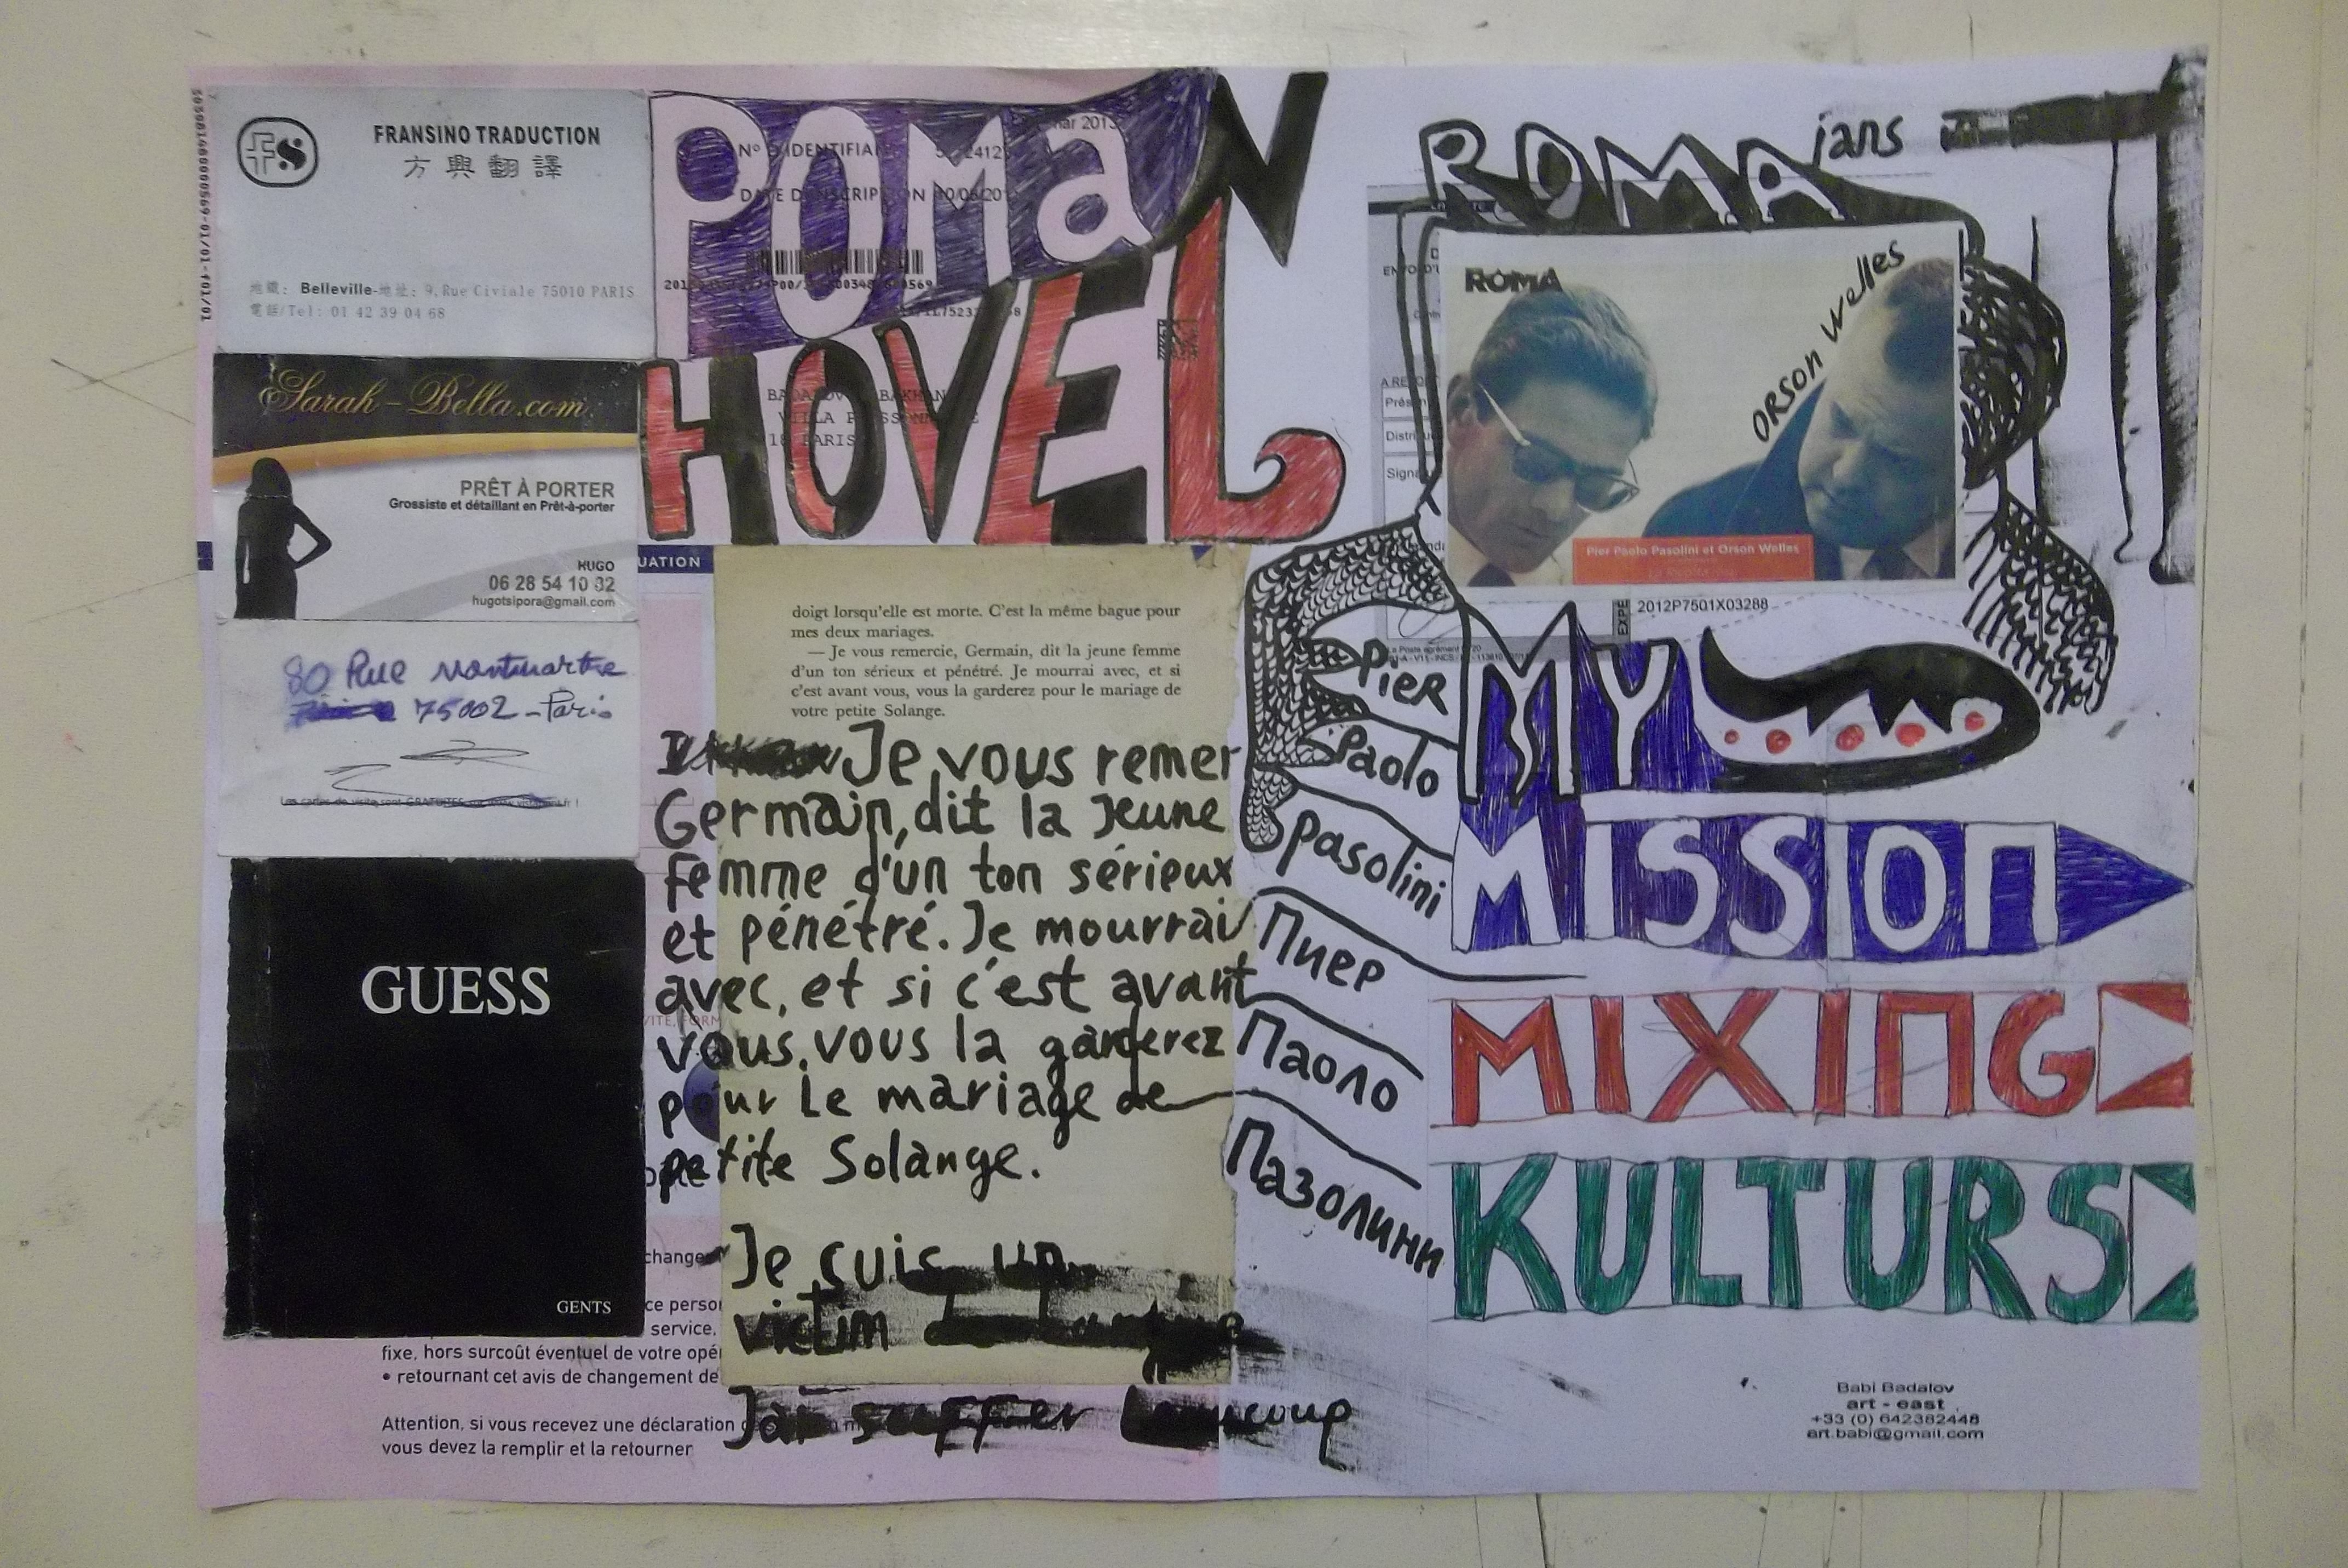 FRANSINO TRADUCTION
方興翻譯
地鐵: Belleville-地址: 9, Rue Civiale 75010 PARIS
電話/Tel: 01 42 39 04 68
Sarah-Bella.com
PRÊT À PORTER
Grossiste et détaillant en Prêt-à-porter
HUGO
06 28 54 10 32
hugotsipora@gmail.com
80 Rue Montmartre
75002-Paris
GUESS
GENTS
fixe, hors surcoût éventuel de votre opé
• retournant cet avis de changement de
Attention, si vous recevez une déclaration
vous devez la remplir et la retourner
change
ce perso
service,
UATION
POMaN
HOVEL
doigt lorsqu'elle est morte. C'est la même bague pour
mes deux mariages.
— Je vous remercie, Germain, dit la jeune femme
d'un ton sérieux et pénétré. Je mourrai avec, et si
c'est avant vous, vous la garderez pour le mariage de
votre petite Solange.
Je vous remer
Germain, dit la jeune
femme d'un ton sérieux
et pénétré. Je mourrai
avec, et si c'est avant
vous, vous la garderez
pour le mariage de
petite Solange.
Je suis un
victim
Jai suffer beaucoup
ROMAians
ROMA
ORSON Welles
Pier Paolo Pasolini et Orson Welles
EXPE
2012P7501X03288
PiER
Paolo
Pasolini
Пиер
Паоло
Пазолини
MY
MISSIOП
MIXIПG
KULTURS
Babi Badalov
art - east
+33 (0) 642382448
art.babi@gmail.com